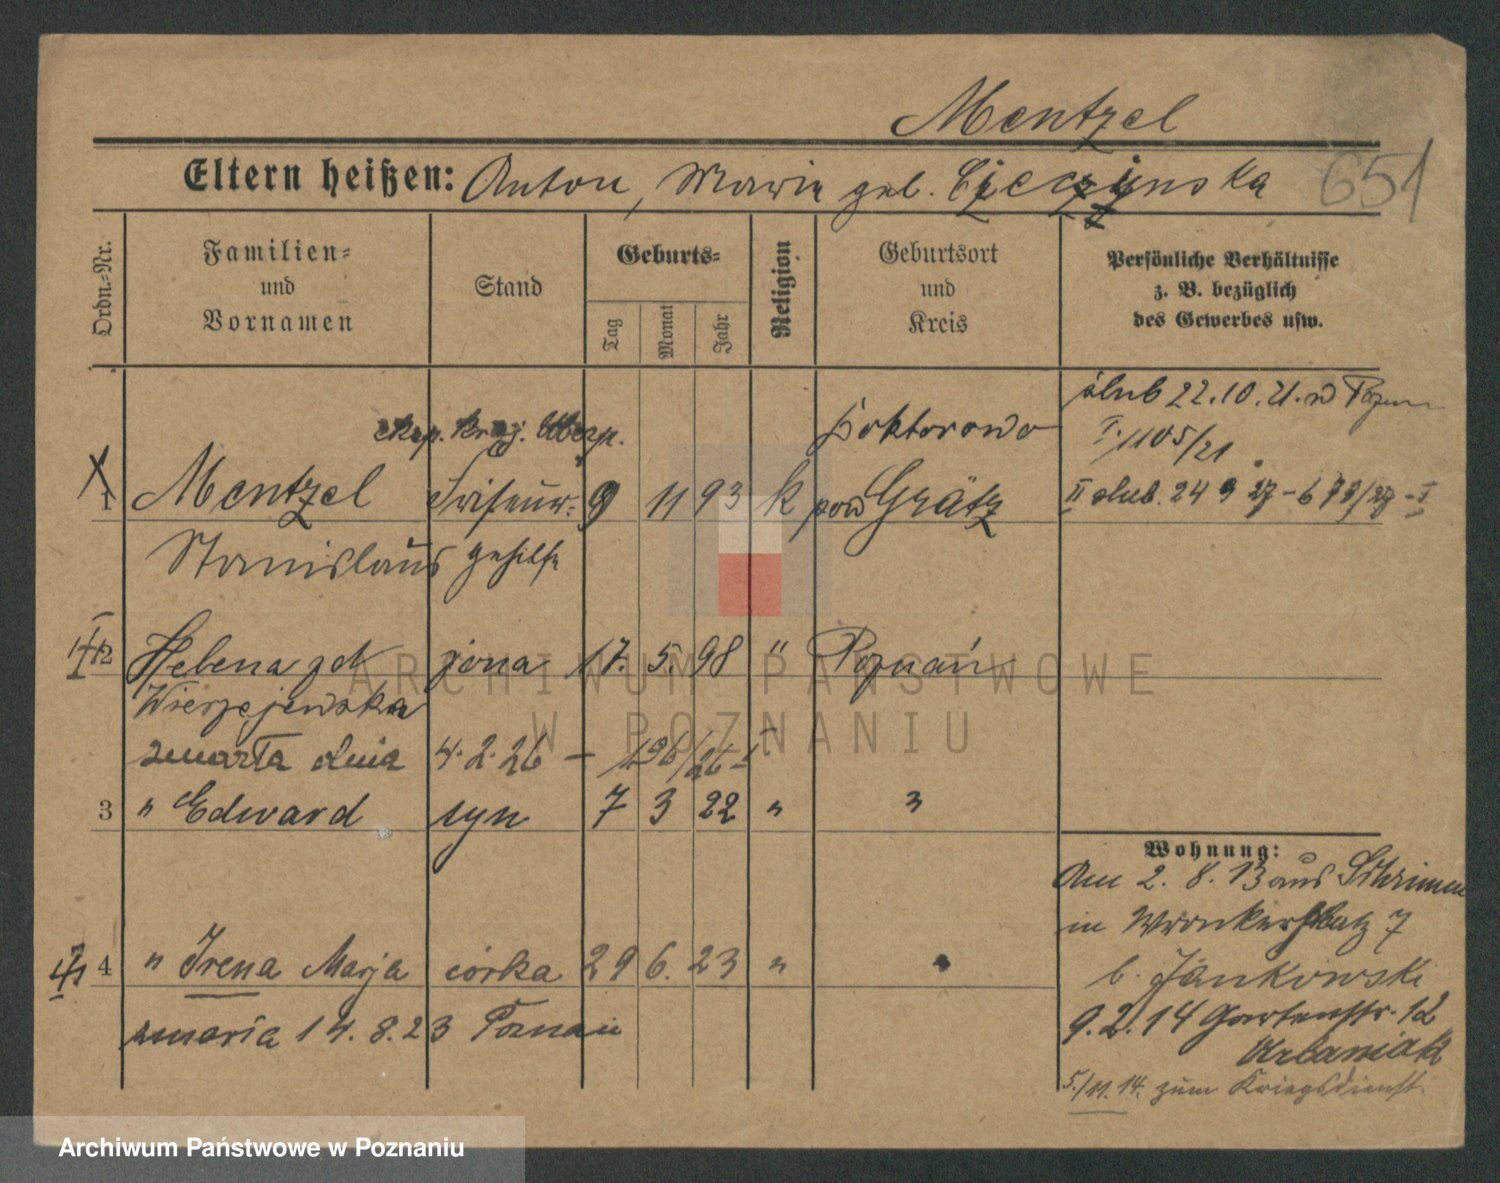 Mentzel
651
Eltern heißen: Anton, Maria geb.
Ordn.-Nr.
Familien-
und
Vornamen
Stand
Geburts-
Tag
Monat
Jahr
Religion
Geburtsort
und
Kreis
Persönliche Verhältnisse
z. B. bezüglich
des Gewerbes usw.
ślub 22.10.21. w Pozn
I. 1105/21
II ślub. 24 9 27 - 673/27 - I
1 Mentzel Friseur- 9 11 93 k Doktorowo
pow Grätz
Stanislaus gehilfe
2 Helena zd żona 17. 5. 98 " Poznań
Wierzejewska
zmarła dnia 4.2.26 - 196/26 I
3 " Edward syn 7 3 22 " "
4 " Irena Marja córka 29 6. 23 " "
zmarła 14.8.23 Poznań
Wohnung:
Am 2. 8. 13 aus Schrimm
in Wronkerplatz 7
b. Jankowski
9.2.14 Gartenstr. 12
Urbaniak
5./11.14. zum Kriegsdienst.
ARCHIWUM PAŃSTWOWE
W POZNANIU
Archiwum Państwowe w Poznaniu